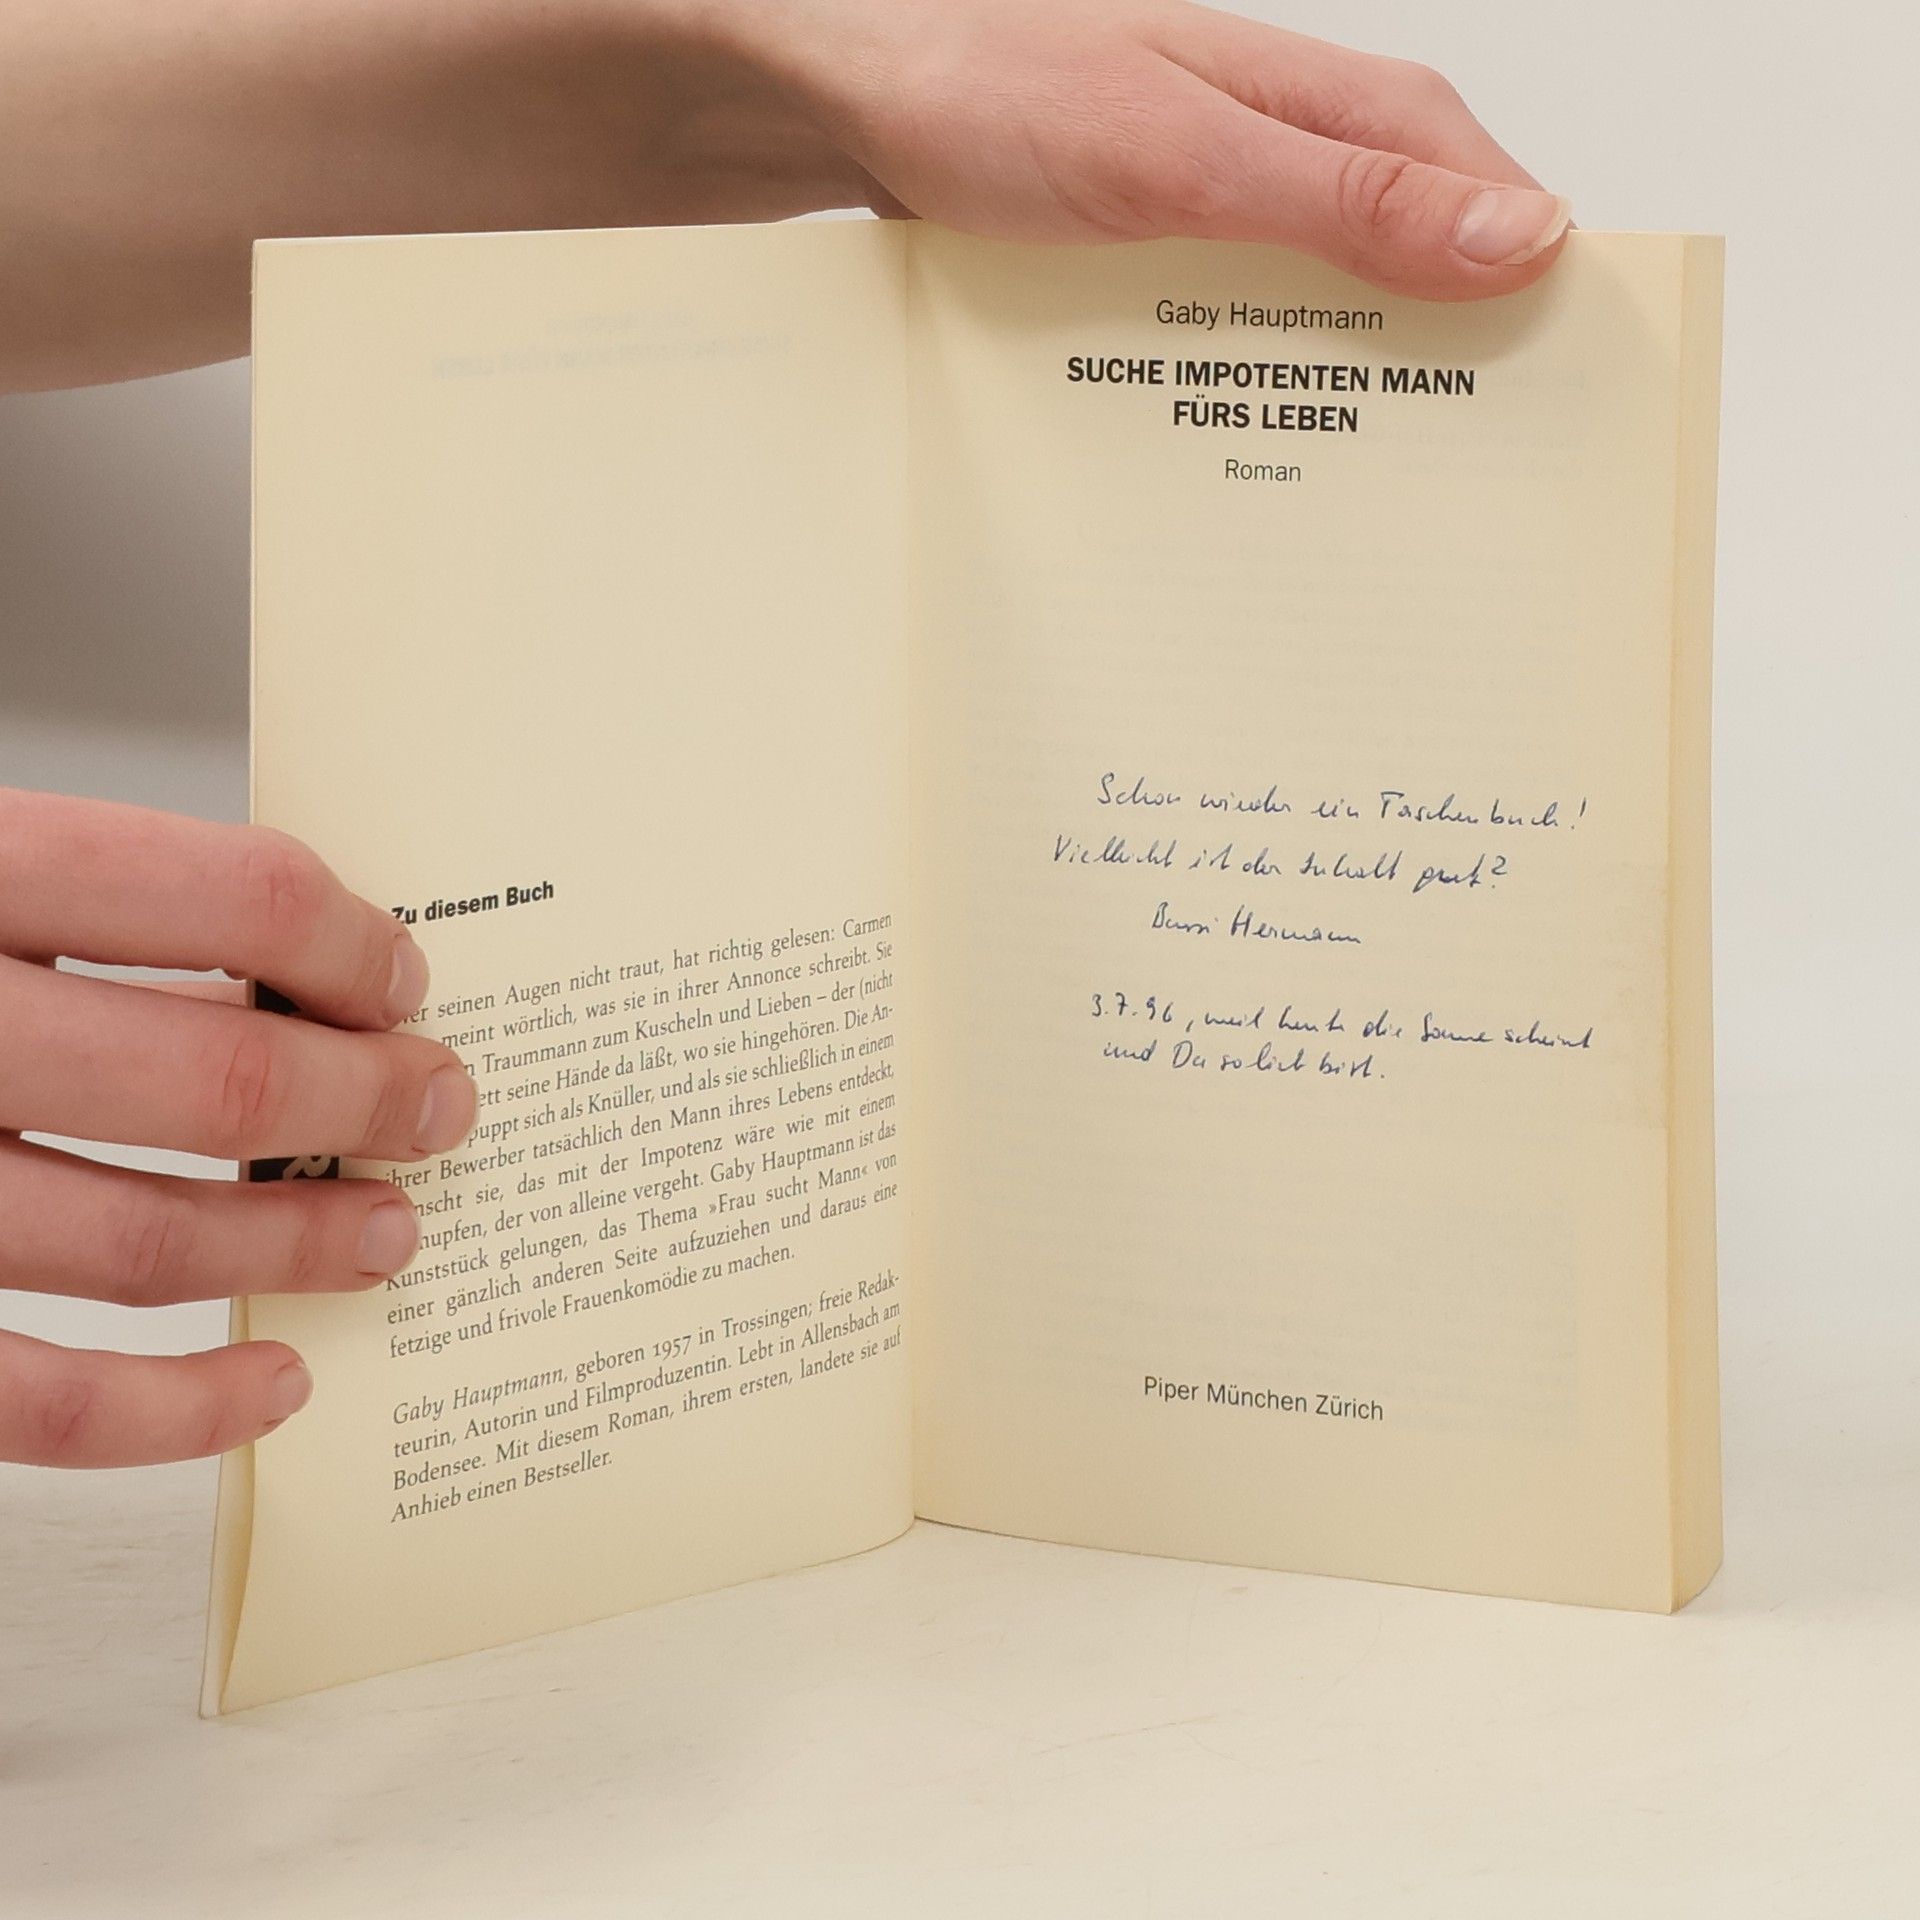 Zu diesem Buch
seinen Augen nicht traut, hat richtig gelesen: Carmen
meint wörtlich, was sie in ihrer Annonce schreibt. Sie
Traummann zum Kuscheln und Lieben – der (nicht
seine Hände da läßt, wo sie hingehören. Die An-
puppt sich als Knüller, und als sie schließlich in einem
ihrer Bewerber tatsächlich den Mann ihres Lebens entdeckt,
sie, das mit der Impotenz wäre wie mit einem
der von alleine vergeht. Gaby Hauptmann ist das
Kunststück gelungen, das Thema »Frau sucht Mann« von
einer gänzlich anderen Seite aufzuziehen und daraus eine
fetzige und frivole Frauenkomödie zu machen.
Gaby Hauptmann, geboren 1957 in Trossingen; freie Redak-
teurin, Autorin und Filmproduzentin. Lebt in Allensbach am
Bodensee. Mit diesem Roman, ihrem ersten, landete sie auf
Anhieb einen Bestseller.
Gaby Hauptmann
SUCHE IMPOTENTEN MANN
FÜRS LEBEN
Roman
Schon wieder ein Taschenbuch!
Vielleicht ist der Inhalt gut?
Bussi Hermann
3.7.96, weil heute die Sonne scheint
und Du so lieb bist.
Piper München Zürich